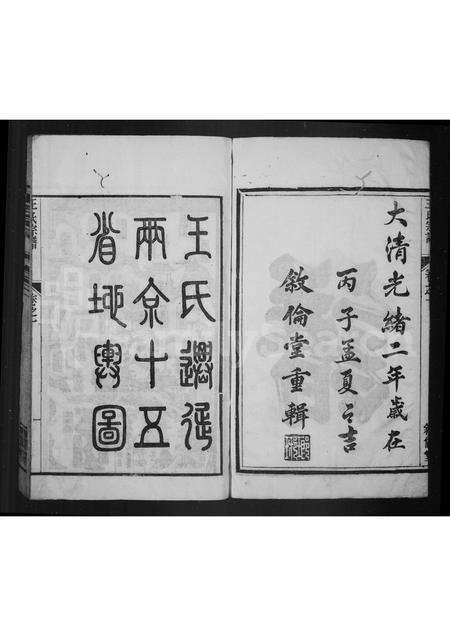 大清光緒二年歲在
丙子孟夏之吉
敘倫堂重輯
王氏遷徙
兩京十五
省地輿圖
王氏宗譜